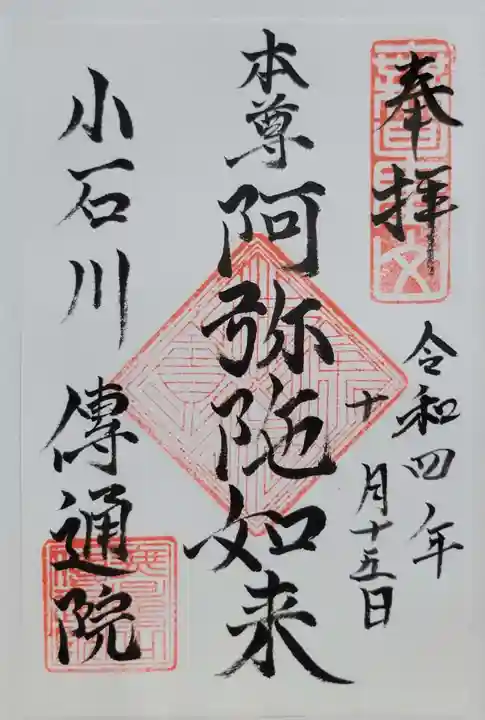 奉拝
令和四年
十月十五日
本尊 阿弥陀如来
小石川 傳通院